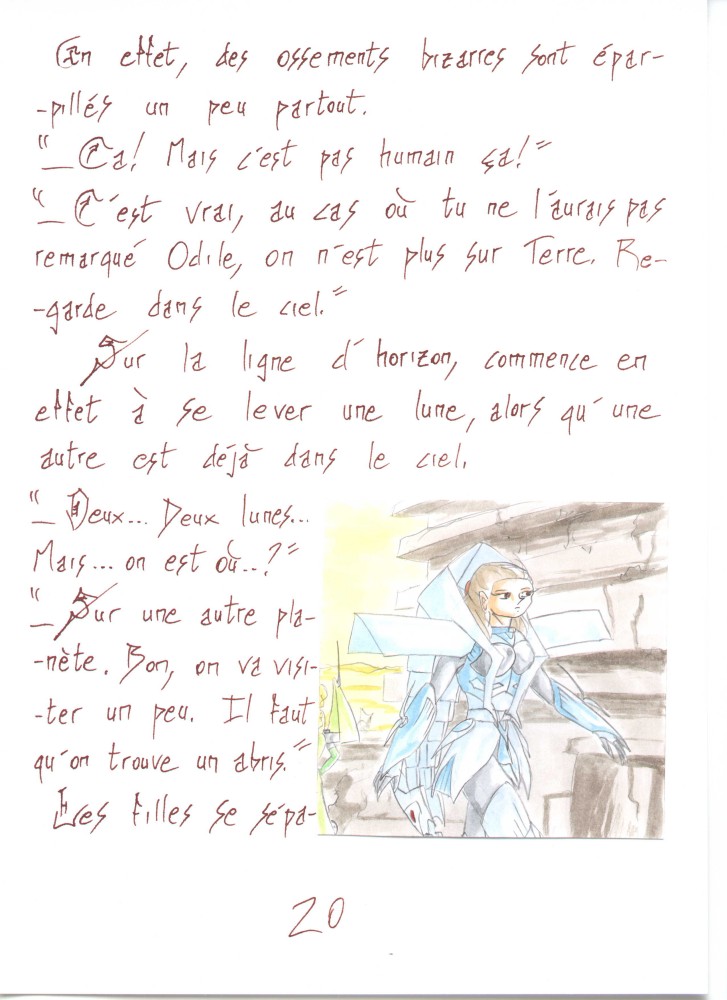 En effet, des ossements bizarres sont épar-
-pillés un peu partout.
"_ Ça! Mais c'est pas humain ça!"
"_ C'est vrai, au cas où tu ne l'aurais pas
remarqué Odile, on n'est plus sur Terre. Re-
-garde dans le ciel."
Sur la ligne d'horizon, commence en
effet à se lever une lune, alors qu'une
autre est déjà dans le ciel.
"_ Deux... Deux lunes...
Mais... on est où..?"
"_ Sur une autre pla-
-nète. Bon, on va visi-
-ter un peu. Il faut
qu'on trouve un abris."
Les filles se sépa-
20